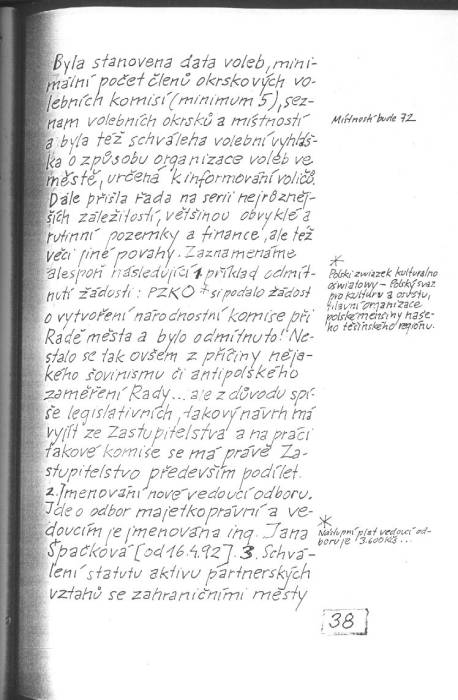 Byla stanovena data voleb, mini-
mální počet členů okrskových vo-
lebních komisí (minimum 5), sez-
nam volebních okrsků a místností
a byla též schválena volební vyhláš-
ka o způsobu organizace voleb ve
městě, určená k informování voličů.
Dále přišla řada na serii nejrůzněj-
ších záležitostí, většinou obvyklé a
rutinní pozemky a finance, ale též
věci jiné povahy. Zaznamenáme
alespoň následující 1. příklad odmít-
nutí žádosti: PZKO * si podalo žádost
o vytvoření národnostní komise při
Radě města a bylo odmítnuto! Ne-
stalo se tak ovšem z příčiny něja-
kého šovinismu či antipolského
zaměření Rady... ale z důvodu spí-
še legislativních, takový návrh má
vyjít ze Zastupitelstva a na práci
takové komise se má právě Za-
stupitelstvo především podílet.
2. Jmenování nové vedoucí odboru.
Jde o odbor majetkoprávní a ve-
doucím je jmenována ing. Jana
Špačková [od 16.4.92]. 3. Schvá-
lení statutu aktivu partnerských
vztahů se zahraničními městy
Místností bude 72
*
Polski związek kulturalno
oświatowy – Polský svaz
pro kulturu a osvětu,
hlavní organizace
polské menšiny naše-
ho těšínského regionu.
*
Nástupní plat vedoucí od-
boru je 3.600 Kčs...
38